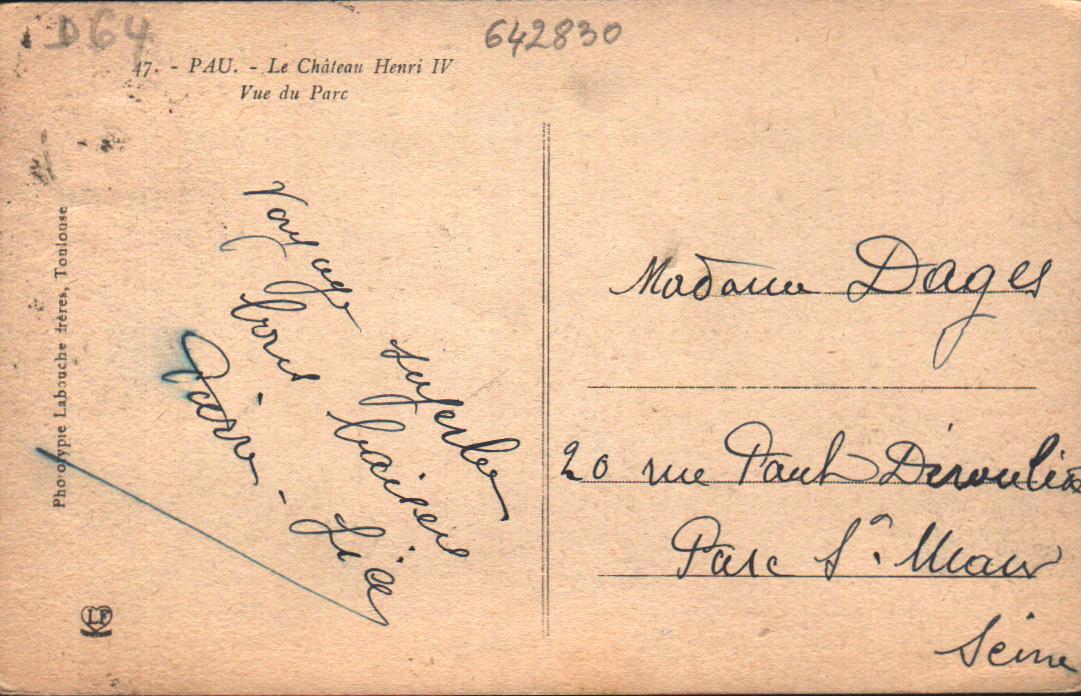 D64
642830
47. - PAU. - Le Château Henri IV
Vue du Parc
Phototypie Labouche frères, Toulouse
Voyage superbe
bons baisers
LF
Madame Dages
20 rue Paul Déroulède
Parc St. Maur
Seine